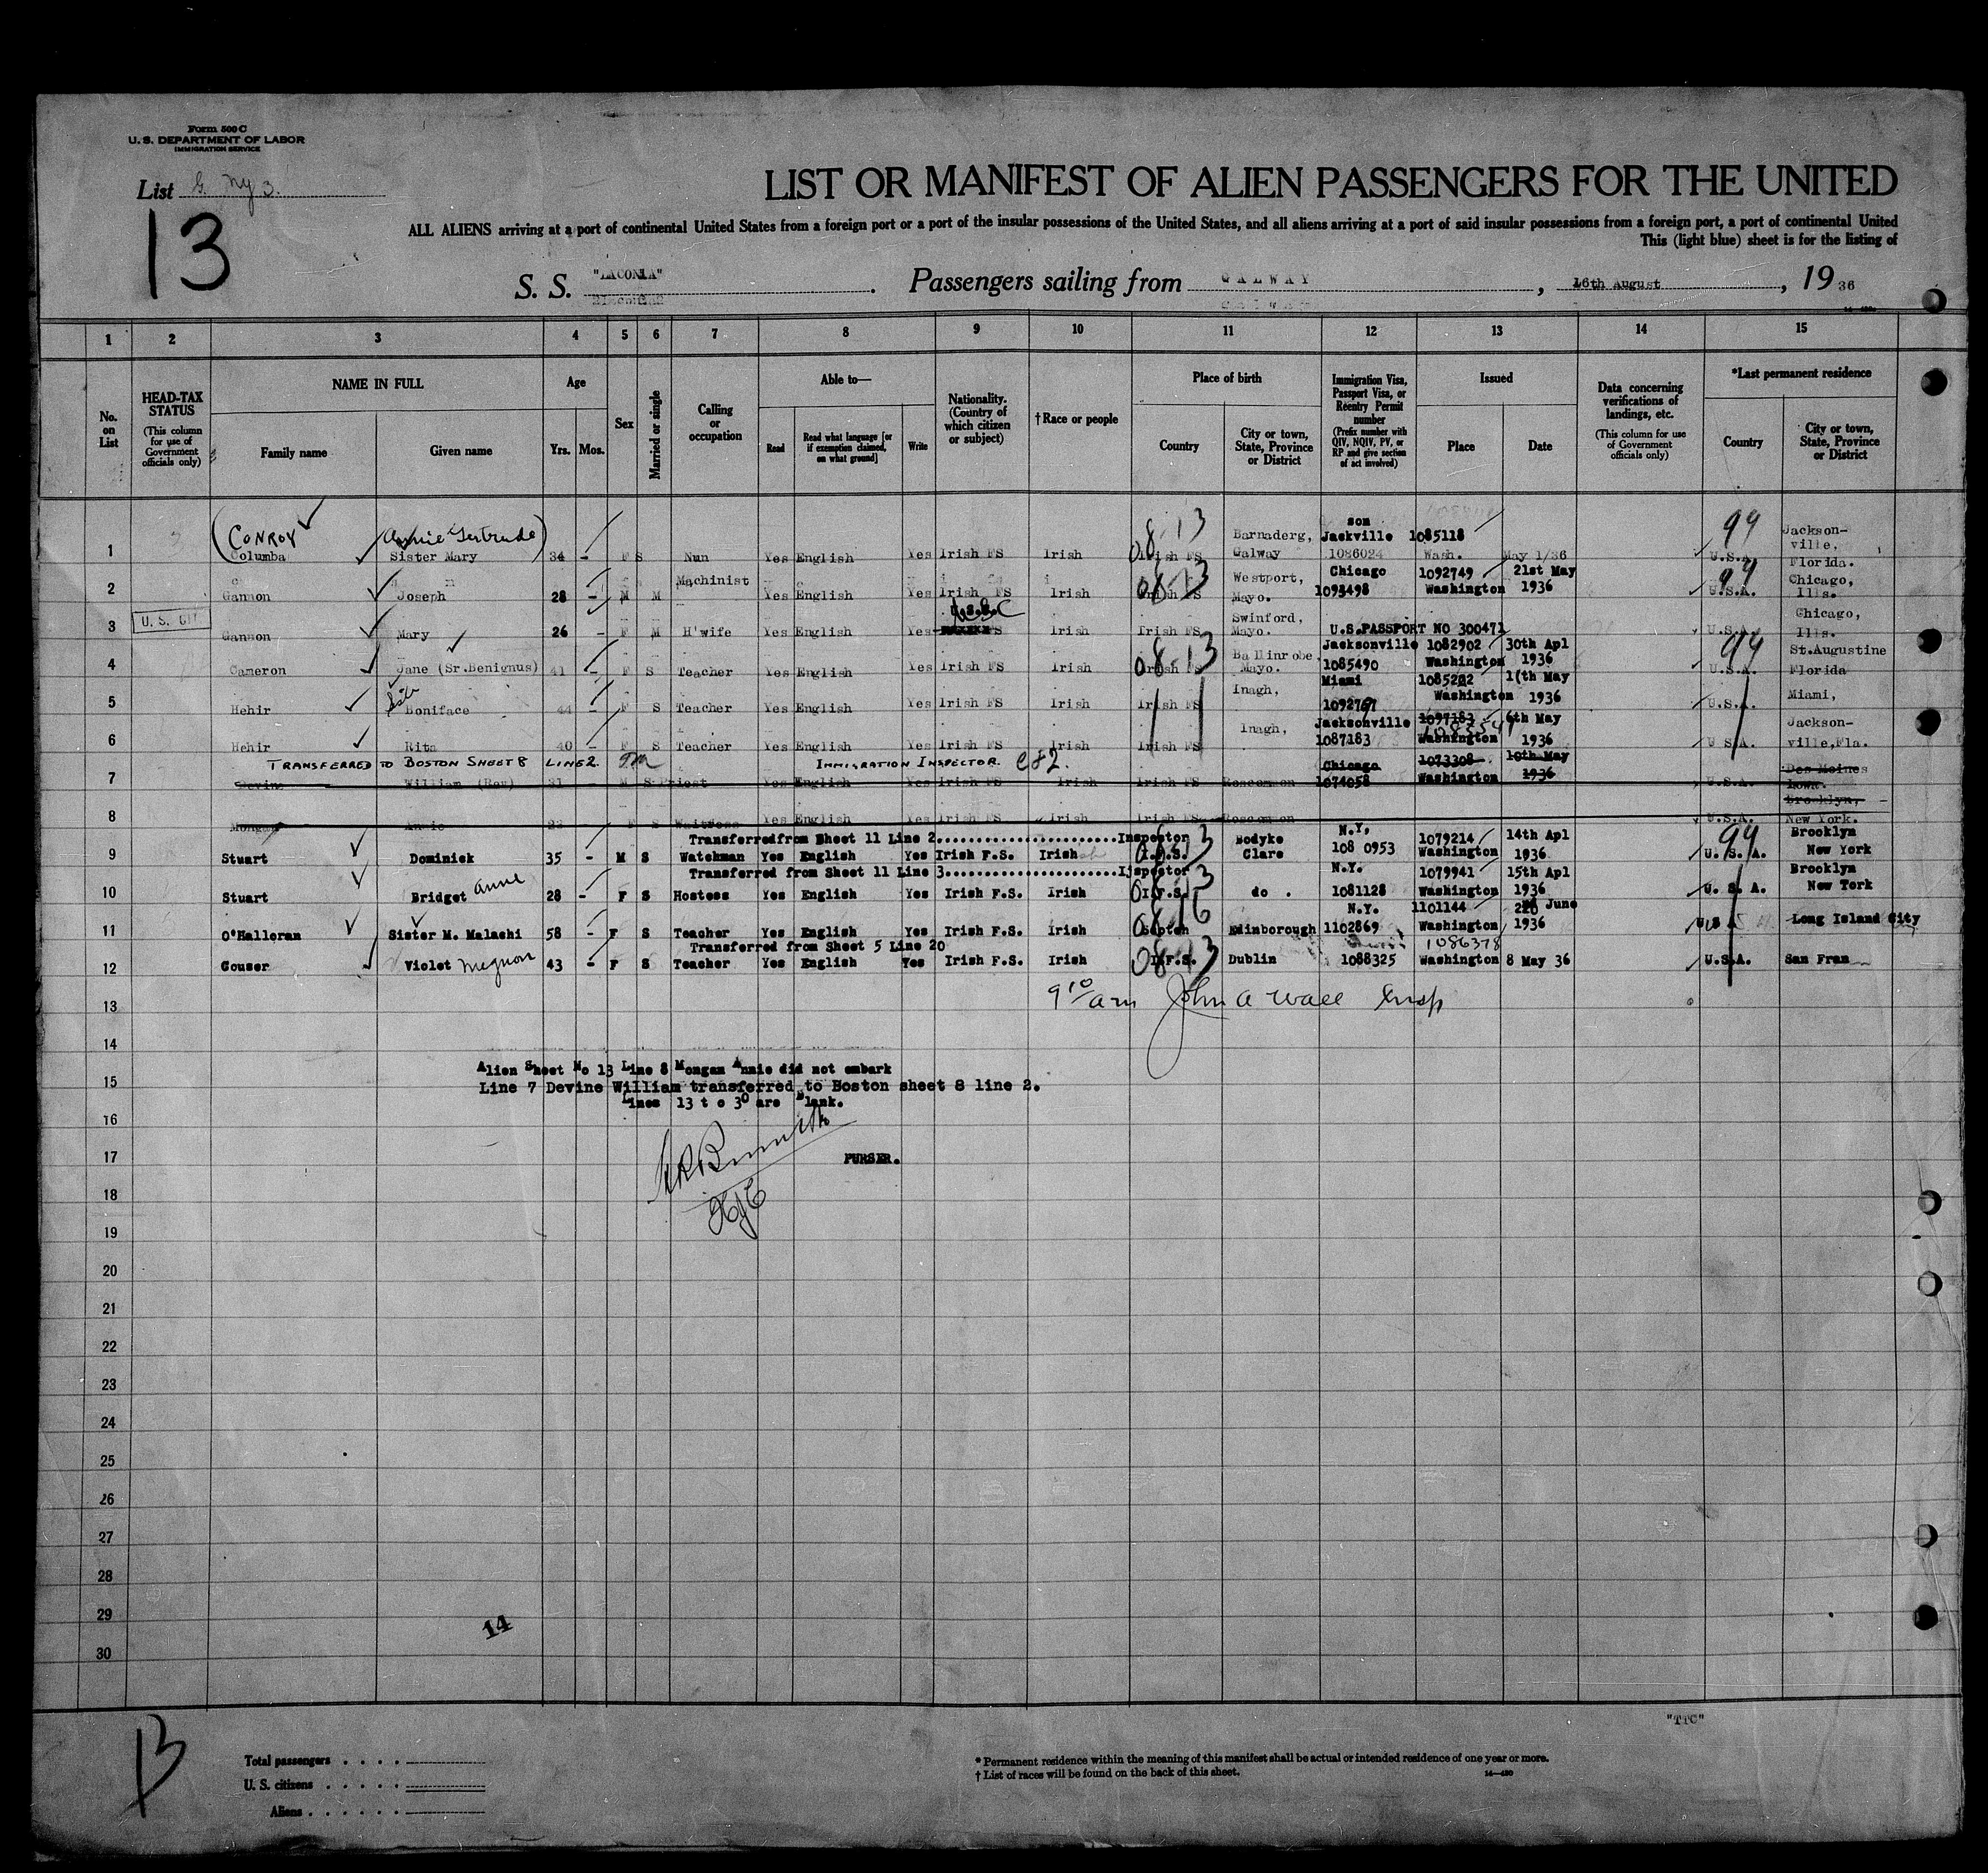 Form 500 C
U. S. DEPARTMENT OF LABOR
IMMIGRATION SERVICE
List
13
LIST OR MANIFEST OF ALIEN PASSENGERS FOR THE UNITED
ALL ALIENS arriving at a port of continental United States from a foreign port or a port of the insular possessions of the United States, and all aliens arriving at a port of said insular possessions from a foreign port, a port of continental United
This (light blue) sheet is for the listing of
S. S. "LACONIA". Passengers sailing from GALWAY, 16th August, 19 36
1 2 3 4 5 6 7 8 9 10 11 12 13 14 15
No. on List
HEAD-TAX STATUS
(This column for use of Government officials only)
NAME IN FULL
Family name
Given name
Age
Yrs. Mos.
Sex
Married or single
Calling or occupation
Able to—
Read
Read what language [or if exemption claimed, on what ground]
Write
Nationality. (Country of which citizen or subject)
† Race or people
Place of birth
Country
City or town, State, Province or District
Immigration Visa, Passport Visa, or Reentry Permit number
(Prefix number with QIV, NQIV, PV, or RP and give section of act involved)
Issued
Place
Date
Data concerning verifications of landings, etc.
(This column for use of Government officials only)
*Last permanent residence
Country
City or town, State, Province or District
(CONROY Annie Gertrude) 08-13 Barnaderg, son Jackville 1085118 99 Jackson-
1 Columba Sister Mary 34 - F S Nun Yes English Yes Irish FS Irish Irish FS Galway 1086024 Wash. May 1/36 U.S.A. ville, Florida.
Machinist 08-13 Westport, Chicago 1092749 21st May 99 Chicago,
2 Gannon Joseph 28 - M M Yes English Yes Irish FS Irish Irish FS Mayo. 1093498 Washington 1936 U.S.A. Ills.
U.S.C Swinford, Chicago,
3 U. S. CIT Gannon Mary 26 - F M H'wife Yes English Yes Irish Irish FS Mayo. U.S.PASSPORT NO 300471 U.S.A. Ills.
08-13 Ballinrobe Jacksonville 1082902 30th Apl 99 St.Augustine
4 Cameron Jane (Sr.Benignus) 41 - F S Teacher Yes English Yes Irish FS Irish Irish FS Mayo. 1085490 Washington 1936 U.S.A. Florida
Inagh, Miami Miami,
5 Hehir Boniface 44 - F S Teacher Yes English Yes Irish FS Irish Irish FS Washington 1936 U.S.A.
Inagh, Jacksonville 1097183 6th May Jackson-
6 Hehir Rita 40 - F S Teacher Yes English Yes Irish FS Irish Irish FS 1087183 Washington 1936 U S A. ville,Fla.
TRANSFERRED TO BOSTON SHEET 8 LINE 2 IMMIGRATION INSPECTOR. Chicago 1073308 18th May Des Moines
7 Devine William (Rev) 31 - M S Priest Yes English Yes Irish FS Irish Irish FS Roscommon 1074058 Washington 1936 U.S.A. Iowa.
Brooklyn,
8 Mongan Annie 22 F S Waitress Yes English Yes Irish FS Irish Irish FS Roscommon U.S.A. New York.
Transferredfrom Sheet 11 Line 2.......................Inspector Bodyke N.Y. 1079214 14th Apl 99 Brooklyn
9 Stuart Dominick 35 - M S Watchman Yes English Yes Irish F.S. Irish I.F.S. Clare 108 0953 Washington 1936 U. S. A. New York
Transferred from Sheet 11 Line 3......................Ijspector N.Y. 1079941 15th Apl Brooklyn
10 Stuart Bridget Anne 28 - F S Hostess Yes English Yes Irish F.S. Irish I.F.S. do . 1081128 Washington 1936 U. S. A. New Tork
N.Y. 1101144 June
11 O'Halloran Sister M. Malachi 58 - F S Teacher Yes English Yes Irish F.S. Irish Edinborough 1102869 Washington 1936 Long Island City
Transferred from Sheet 5 Line 20 1086378
12 Gouser Violet Megnon 43 - F S Teacher Yes English Yes Irish F.S. Irish I.F.S. Dublin 1088325 Washington 8 May 36 U.S.A. San Fran
13 9 10 am John A Wall Insp
14
Alien Sheet No 13 Line 8 Mongan Annie did not embark
15 Line 7 Devine William transferred to Boston sheet 8 line 2.
Lines 13 t o 30 are Blank.
16
17 PURSER.
18
19
20
21
22
23
24
25
26
27
28
29
14
30
"TTC"
13
Total passengers . . . .
U. S. citizens . . . . .
Aliens . . . . . .
* Permanent residence within the meaning of this manifest shall be actual or intended residence of one year or more.
† List of races will be found on the back of this sheet.
14—480